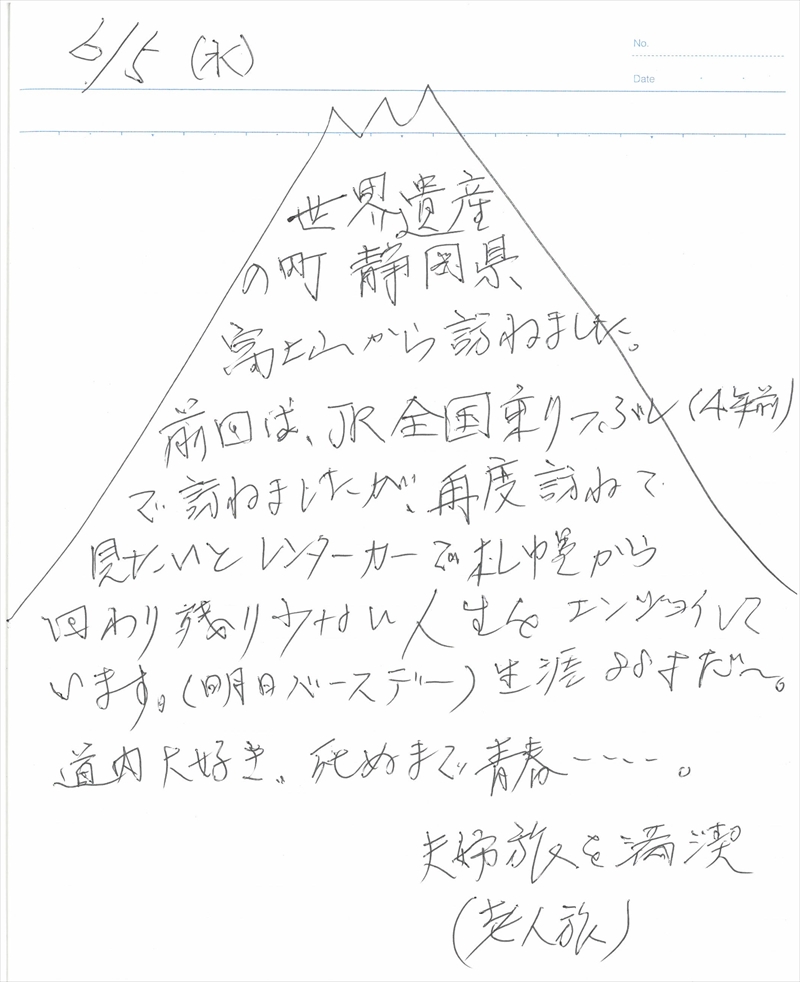 6/5 (水)
No.
Date
世界遺産
の町 静岡県
富士山から訪ねました。
前回は、JR全国乗りつぶし(4年前)
で訪ねましたが、再度訪ねて
見たいとレンターカーで札幌から
回わり残り少ない人生をエンジョイして
います。(明日バースデー)生涯
道内大好き、死ぬまで青春----。
夫婦旅を満喫
(老人旅)